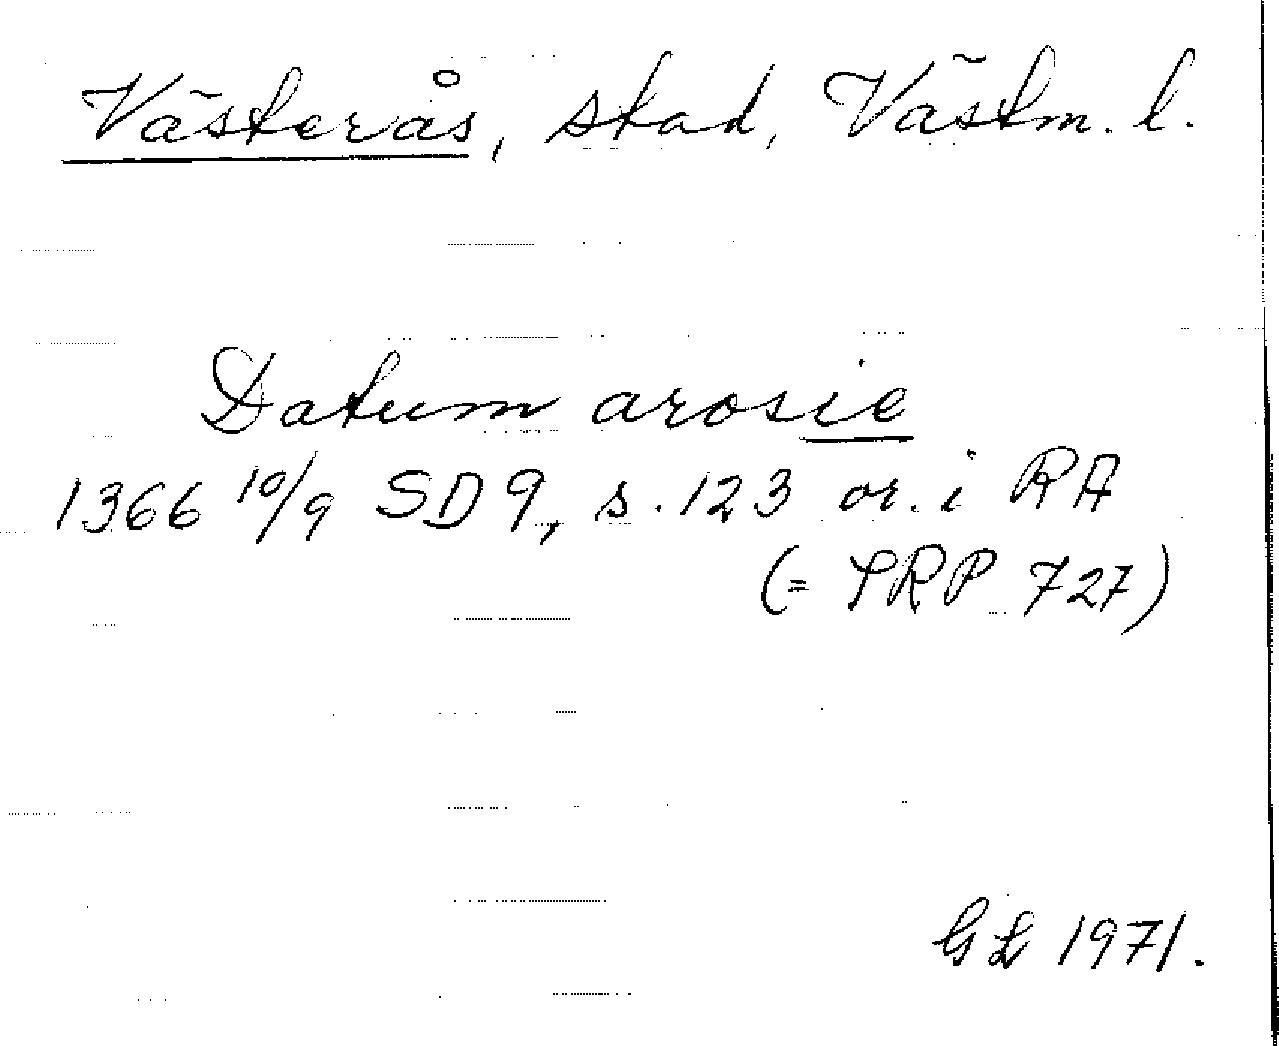 Västerås, stad, Västm. l.
Datum arosie
1366 10/9 SD 9, s. 123 or. i RA
(= PRP 727)
GL 1971.